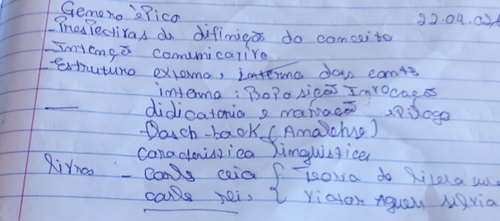 Genero èpico 22.04.024
- Prespectivas de difinição do conceito
- Intenção comunicativa
- Estrutura externa, interna das conto
interna: Poposição Invocação
didicatoria e narração, epiloga
- Dasch-back (Analchse)
Caracteristica linguistica
livros - Carlo ceia { Teoria de litera
carlo reis, { Vitor Aguiar silvia